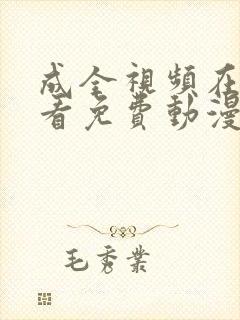 成全視頻在
看免費動漫
毛秀業